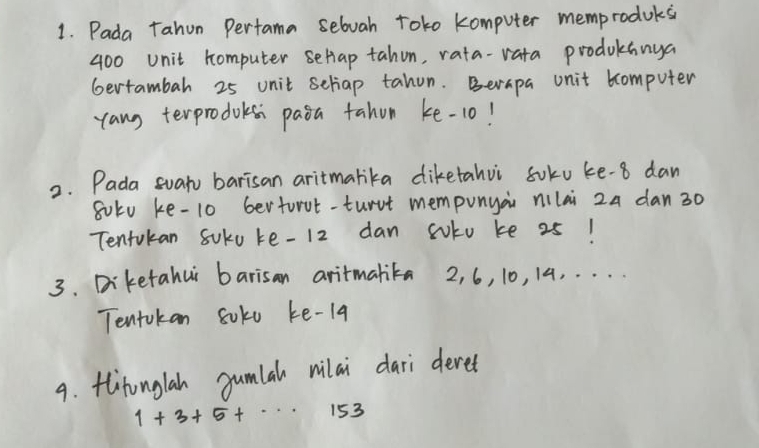 1. Pada Tahun Pertama sebuah Toko Komputer memproduksi
400 unit komputer setiap tahun, rata-rata produksinya
bertambah 25 unit setiap tahun. Berapa unit komputer
yang terproduksi pada tahun ke-10!
2. Pada suatu barisan aritmatika diketahui suku ke-8 dan
suku ke-10 berturut-turut mempunyai nilai 24 dan 30
Tentukan suku ke-12 dan suku ke 25!
3. Diketahui barisan aritmatika 2, 6, 10, 14, .....
Tentukan suku ke-14
4. Hitunglah jumlah nilai dari deret
1 + 3 + 5 + ... 153